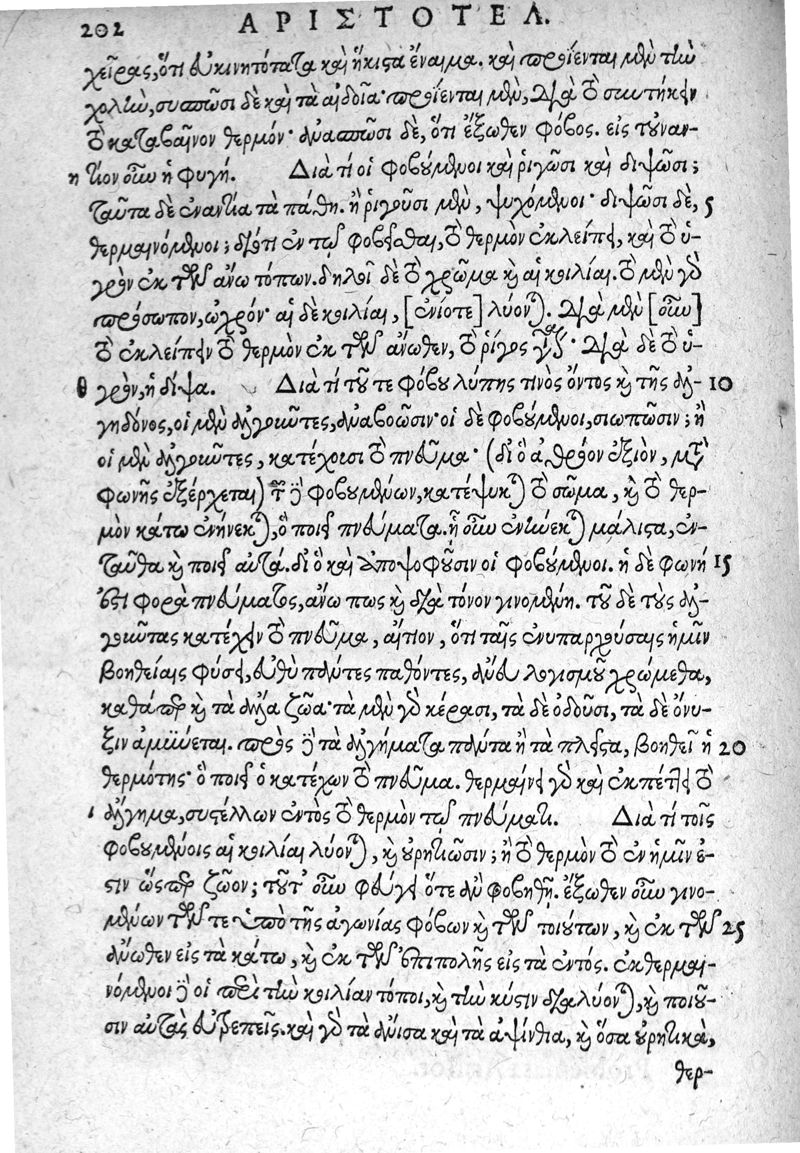 202 ΑΡΙΣΤΟΤΕΛ.
χεῖρας, ὅτι εὐκινητότατα καὶ ἥκιστα ἔναιμα. καὶ προΐενται μὲν τὴν
χολὴν, συσπῶσι δὲ καὶ τὰ αἰδοῖα· προΐενται μὲν, διὰ τὸ συντήκειν
τὸ καταβαῖνον θερμόν· ἀνασπῶσι δὲ, ὅτι ἔξωθεν φόβος. εἰς τοὐναν-
η τίον οὖν ἡ φυγή. Διὰ τί οἱ φοβούμενοι καὶ ῥιγῶσι καὶ διψῶσι;
ταῦτα δὲ ἐναντία τὰ πάθη. ἢ ῥιγοῦσι μὲν, ψυχόμενοι· διψῶσι δὲ, 5
θερμαινόμενοι; διότι ἐν τῷ φοβεῖσθαι, τὸ θερμὸν ἐκλείπει, καὶ τὸ ὑ-
γρὸν ἐκ τῶν ἄνω τόπων. δηλοῖ δὲ τὸ χρῶμα καὶ αἱ κοιλίαι. τὸ μὲν γὰρ
πρόσωπον, ὠχρόν· αἱ δὲ κοιλίαι, [ἐνίοτε] λύονται. διὰ μὲν [οὖν]
τὸ ἐκλείπειν τὸ θερμὸν ἐκ τῶν ἄνωθεν, τὸ ῥίγος γίνεται· διὰ δὲ τὸ ὑ-
θ γρὸν, ἡ δίψα. Διὰ τί τοῦ τε φόβου λύπης τινὸς ὄντος καὶ τῆς ἀλ- 10
γηδόνος, οἱ μὲν ἀλγοῦντες, ἀναβοῶσιν· οἱ δὲ φοβούμενοι, σιωπῶσιν; ἢ
οἱ μὲν ἀλγοῦντες, κατέχουσι τὸ πνεῦμα· (διὸ ἀθρόον ἐξιὸν, μετὰ
φωνῆς ἐξέρχεται) τῶν δὲ φοβουμένων, κατέψυκται τὸ σῶμα, καὶ τὸ θερ-
μὸν κάτω ἐνήνεκται, ὃ ποιεῖ πνεύματα. ᾗ οὖν ἐνήνεκται μάλιστα, ἐν-
ταῦθα καὶ ποιεῖ αὐτά. διὸ καὶ ἀποψοφοῦσιν οἱ φοβούμενοι. ἡ δὲ φωνή 15
ἐστι φορὰ πνεύματος, ἄνω πως καὶ διὰ τόνον γινομένη. τοῦ δὲ τοὺς ἀλ-
γοῦντας κατέχειν τὸ πνεῦμα, αἴτιον, ὅτι ταῖς ἐνυπαρχούσαις ἡμῖν
βοηθείαις φύσει, εὐθὺ πολύτες παθόντες, ἄνευ λογισμοῦ χρώμεθα,
καθάπερ καὶ τὰ ἄλλα ζῶα· τὰ μὲν γὰρ κέρασι, τὰ δὲ ὀδοῦσι, τὰ δὲ ὄνυ-
ξιν ἀμύνεται. πρὸς δὲ τὰ ἀλγήματα πάντα ἢ τὰ πλεῖστα, βοηθεῖ ἡ 20
θερμότης· ὃ ποιεῖ ὁ κατέχων τὸ πνεῦμα. θερμαίνει γὰρ καὶ ἐκπέττει τὸ
ι ἄλγημα, συστέλλων ἐντὸς τὸ θερμὸν τῷ πνεύματι. Διὰ τί τοῖς
φοβουμένοις αἱ κοιλίαι λύονται, καὶ οὐρητιῶσιν; ἢ τὸ θερμὸν τὸ ἐν ἡμῖν ἐ-
στὶν ὥσπερ ζῶον; τοῦτ' οὖν φεύγει ὅτε ἂν φοβηθῇ. ἔξωθεν οὖν γινο-
μένων τῶν τε ὑπὸ τῆς ἀγωνίας φόβων καὶ τῶν τοιούτων, καὶ ἐκ τῶν 25
ἄνωθεν εἰς τὰ κάτω, καὶ ἐκ τῶν ἐπιπολῆς εἰς τὰ ἐντός. ἐκθερμαι-
νόμενοι δὲ οἱ περὶ τὴν κοιλίαν τόποι, καὶ τὴν κύστιν διαλύονται, καὶ ποιοῦ-
σιν αὐτὰς εὐτρεπεῖς. καὶ γὰρ τὰ ἄνισα καὶ τὰ ἀψίνθια, καὶ ὅσα οὐρητικὰ,
θερ-